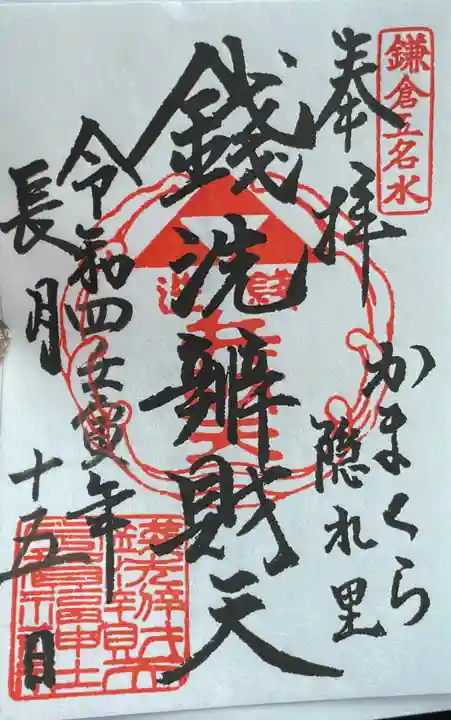 鎌倉五名水
奉拝
かまくら
隠れ里
銭洗辨財天
令和四壬寅年
長月
十五日